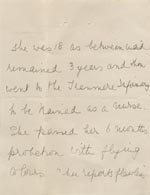 She was 18 as between maid
remained 3 years and then
went to the Infirmary
to be trained as a nurse.
She passed her 6 months
probation with flying
colours "her reports